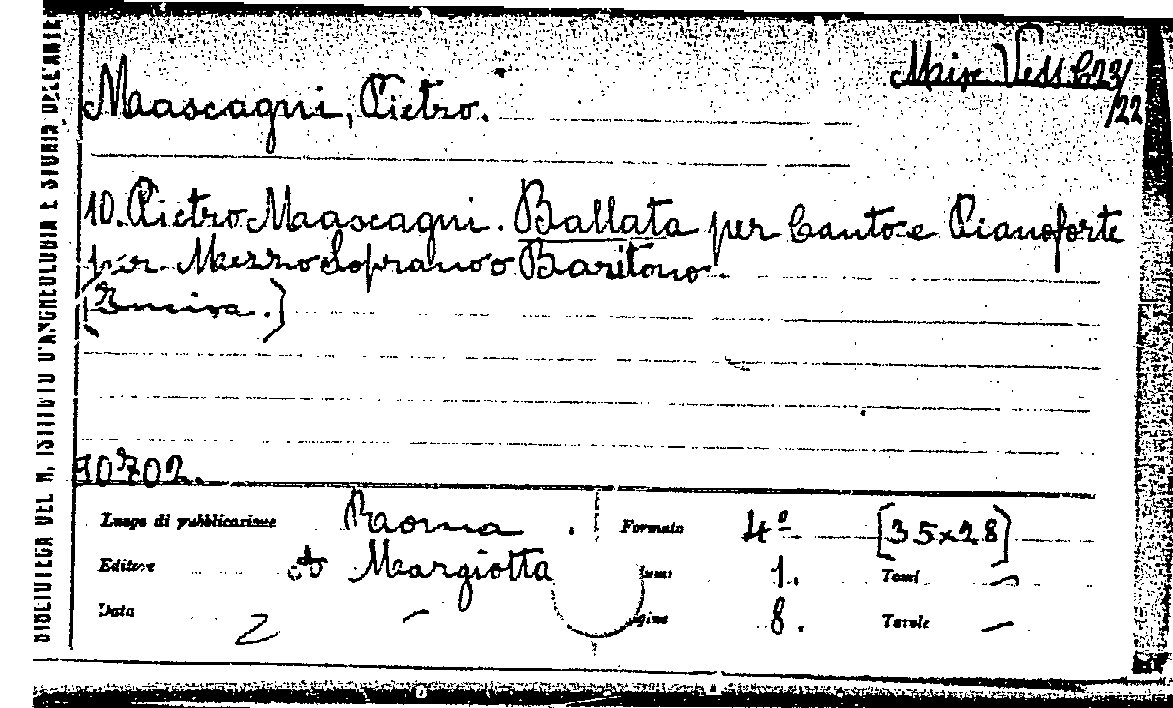 BIBLIOTECA DEL R. ISTITUTO D'ARCHEOLOGIA E STORIA DELL'ARTE
Maascagni, Pietro.
Misc. Vess. C23/
/22
10. Pietro Maascagni. Ballata per Canto e Pianoforte
per Mezzo Soprano o Baritono.
(Incisa.)
30702.
Luogo di pubblicazione Raoma. Formato 4º [35x28]
Editore A Margiotta lumi 1. Tomi –
Data – gine 8. Tavole –
2